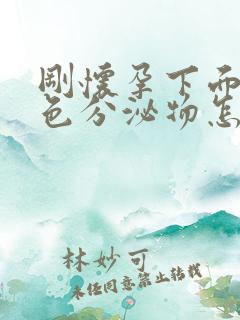 刚怀孕下面
色分泌物怎
林妙可
未经同意禁止转载